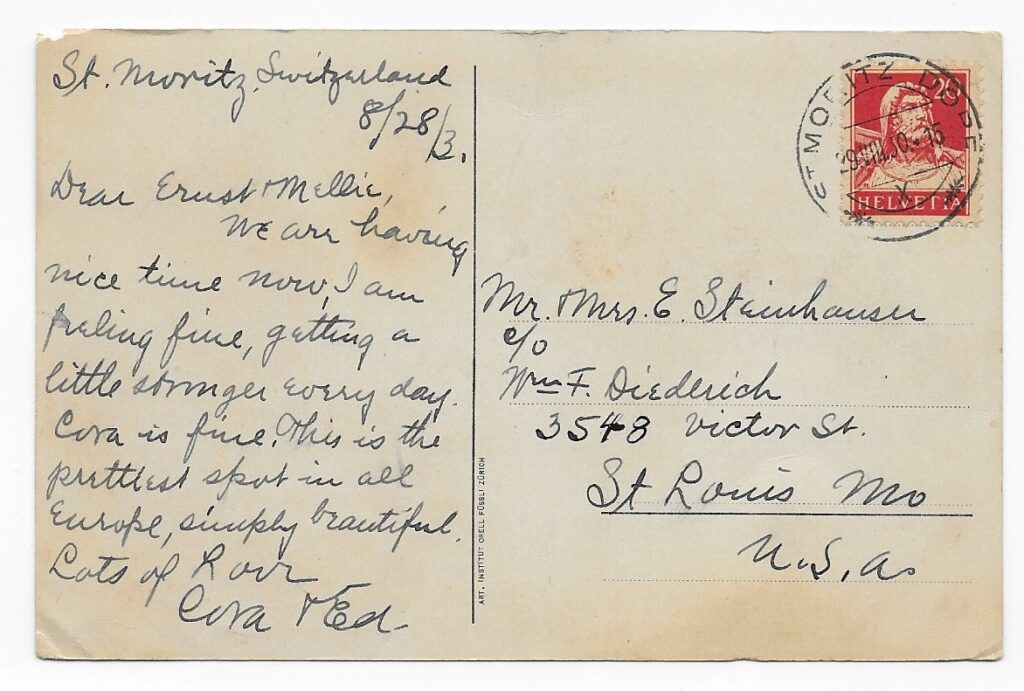 St. Moritz, Switzerland
8/28/3.
Dear Ernst & Mellie,
We are having
nice time now, I am
feeling fine, getting a
little stronger every day.
Cora is fine. This is the
prettiest spot in all
Europe, simply beautiful.
Lots of
Cora & Ed.
ST. MORITZ DORF
29.VIII.10.-15
X
HELVETIA
Mr. & Mrs. E. Steinhauser
c/o
Wm F. Diederich
3548 Victor St.
St Louis Mo
U.S.A.
ART. INSTITUT ORELL FÜSSLI ZÜRICH